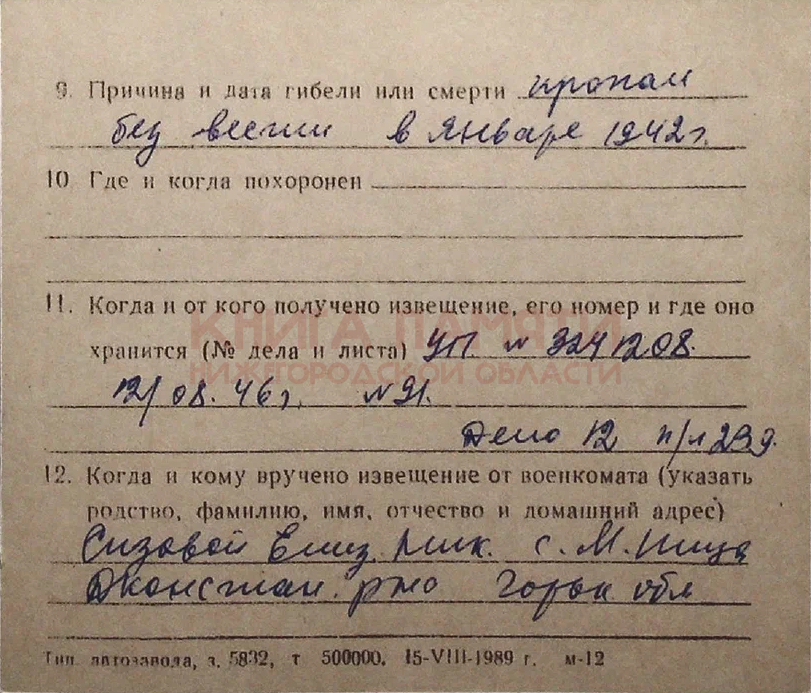 9. Причина и дата гибели или смерти пропал
без вести в январе 1942 г.
10. Где и когда похоронен
11. Когда и от кого получено извещение, его номер и где оно
КНИГА ПАМЯТИ
хранится (№ дела и листа) УП. № 3241208.
НИЖЕГОРОДСКОЙ ОБЛАСТИ
12/08.46 г. №91.
Дело 12 п/л 239.
12. Когда и кому вручено извещение от военкомата (указать
родство, фамилию, имя, отчество и домашний адрес)
Сизовой Елиз. Мик. с. М. Пица
Дконстан. р-но Горьк обл
Тип. автозавода, з. 5832, т 500000. 15-VIII-1989 г. м-12